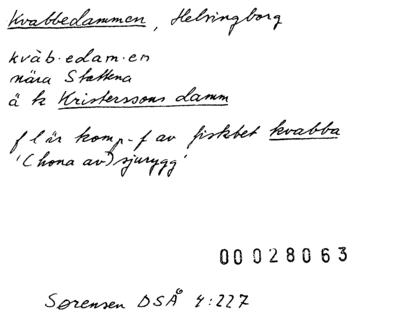 Kvabbedammen, Helsingborg
kvàb·edam·en
nära Slottena
ä k Kristerssons damm
f l är komp-f av fiskbet kvabba
'(hona av) sjurygg'
00028063
Sørensen DSÅ 4:227